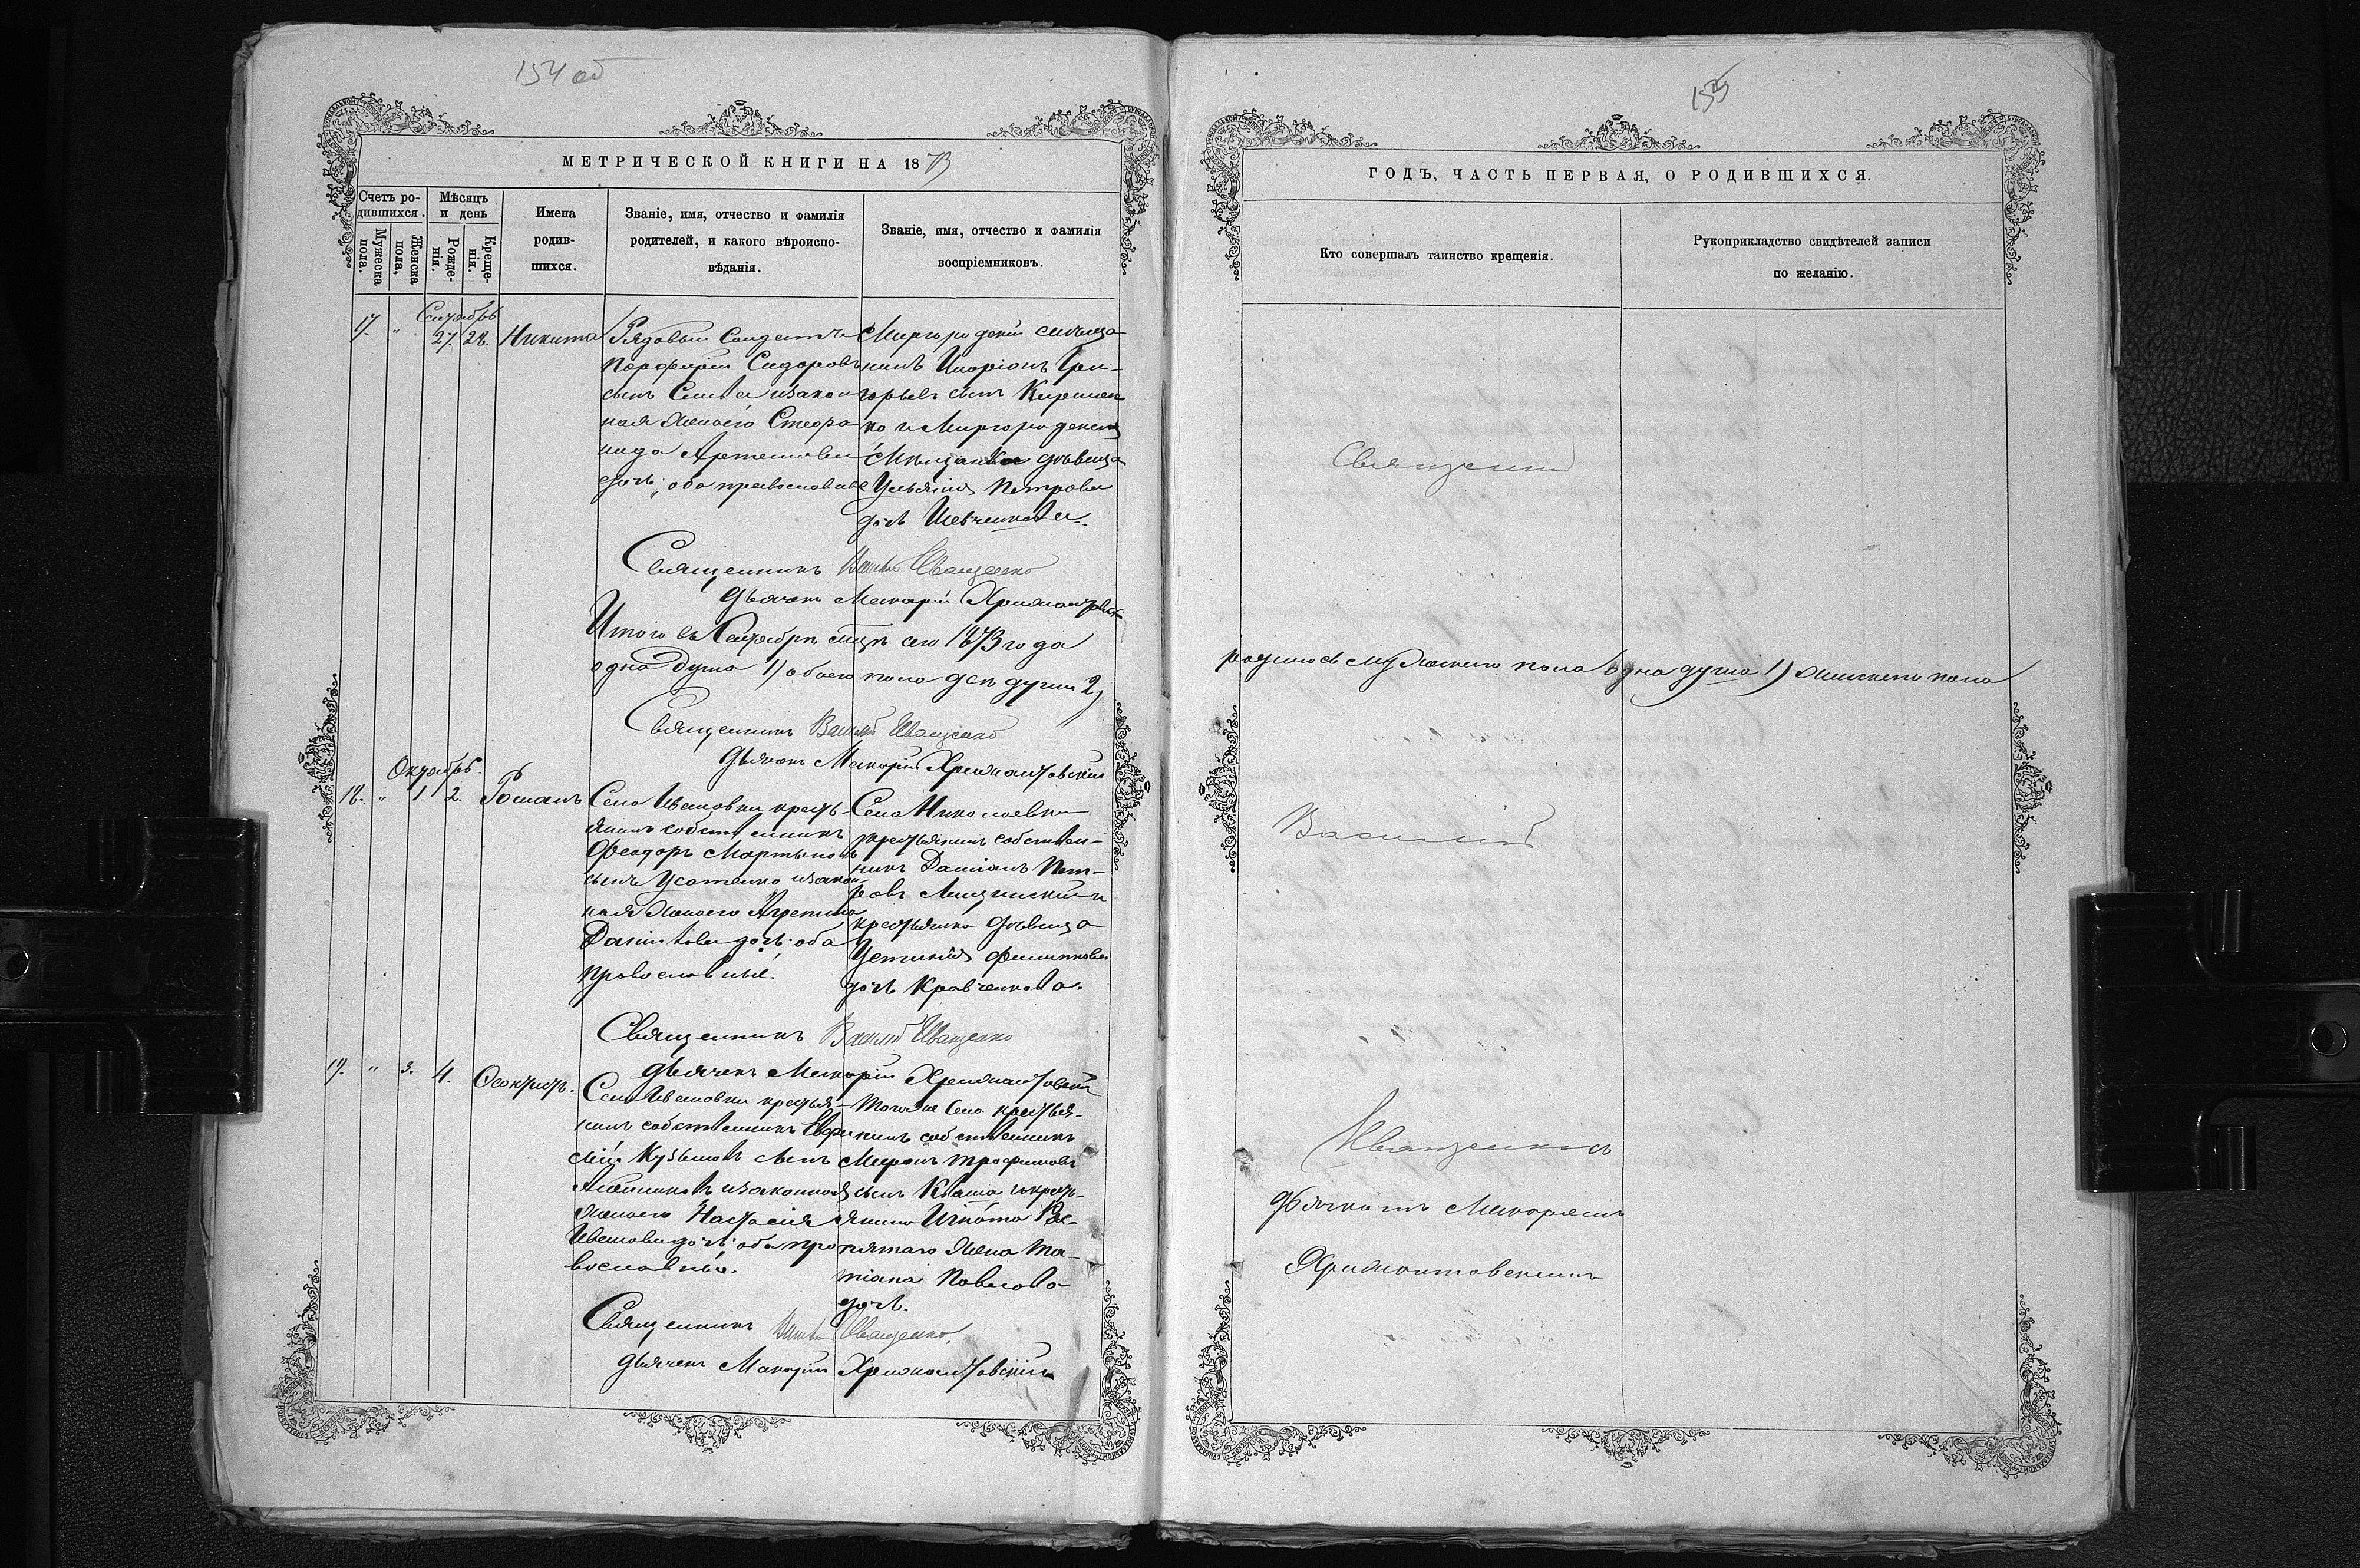 154 об
МЕТРИЧЕСКОЙ КНИГИ НА 1873
Счетъ ро-
дившихся.
Мѣсяцъ
и день
Мужеска
пола.
Женска
пола.
Рожде-
нія.
Креще-
нія.
Имена
родив-
шихся.
Званіе, имя, отчество и фамилія
родителей, и какого вѣроиспо-
вѣданія.
Званіе, имя, отчество и фамилія
воспріемниковъ.
Сентябрь
17. " 27. 28. Никита
Рядовый Солдатъ
Порфирій Сидоровъ
сынъ и закон
ная жена его Стефа
нида Артемова
дочь; оба православные
Миргородскій мѣща
нинъ Иларіонъ Гри-
горьевъ сынъ Киричен
ко и Миргородская
мѣщанка дѣвица
Ульянія Петрова
дочь Шевченкова.
Священникъ Василій Иващенко
Дьячокъ Макарій Хрижановскій
Итого въ Сентябрѣ мцѣ сего 1873 года
одна душа 1) обоего пола двѣ души 2)
Священникъ Василій Иващенко
Дьячокъ Макарій
Октябрь.
18. " 1. 2. Романъ
Села Ивановки кресть-
янинъ собственникъ
Феодоръ Мартыновъ
сынъ Усатенко и закон-
ная жена его Агрепина
Даниилова дочь; оба
православные.
Села Николаевки
крестьянинъ собствен-
никъ Даміанъ Пет-
ровъ и
крестьянка дѣвица
Устинія Филиппова
дочь Кравченкова.
Священникъ Василій Иващенко
Дьячекъ Макарій
19. " 3. 4. Феоктистъ.
Села Ивановки крестья-
нинъ собственникъ
Кузьмовъ сынъ
и законная
жена его Настасія
Иванова дочь; оба пра
вославные.
Того же села крестья-
нинъ собственникъ
Миронъ Трофимовъ
сынъ и кресть-
янина Игната
жена Та-
тіана Павлова
дочь.
Священникъ Иващенко
Дьячекъ Макарій
155
ГОДЪ, ЧАСТЬ ПЕРВАЯ, О РОДИВШИХСЯ.
Кто совершалъ таинство крещенія.
Рукоприкладство свидѣтелей записи
по желанію.
Священник
родилось мужескаго пола одна душа 1) женскаго пола
Василій
Иващенко съ
дьячкомъ Макаріемъ